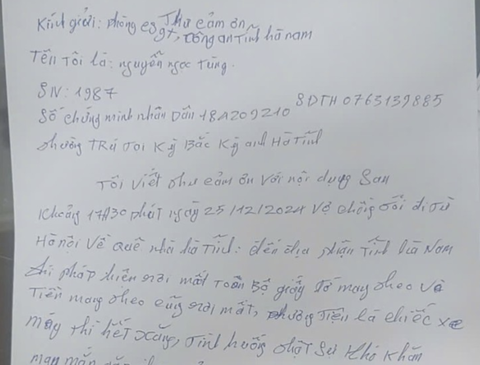 Thư cảm ơn
Kính gửi: phòng csgt, công an Tỉnh hà nam
Tên tôi là: nguyễn ngọc Tùng.
SN: 1987
Số chứng minh nhân Dân 18A209210 SDTH 0763139885
thường TRú Tại Kỳ Bắc Kỳ anh Hà Tĩnh
Tôi viết thư cảm ơn với nội dung Sau
Khoảng 17h30 phút ngày 25/12/2024 vợ chồng tôi đi từ
Hà nội về quê nhà hà Tĩnh: đến địa phận Tỉnh hà Nam
thì phát hiện rơi mất toàn Bộ giấy tờ mang theo và
Tiền mang theo cũng rơi mất, phương Tiện là chiếc xe
máy thì hết xăng, tình huống thật Sự khó khăn
may mắn